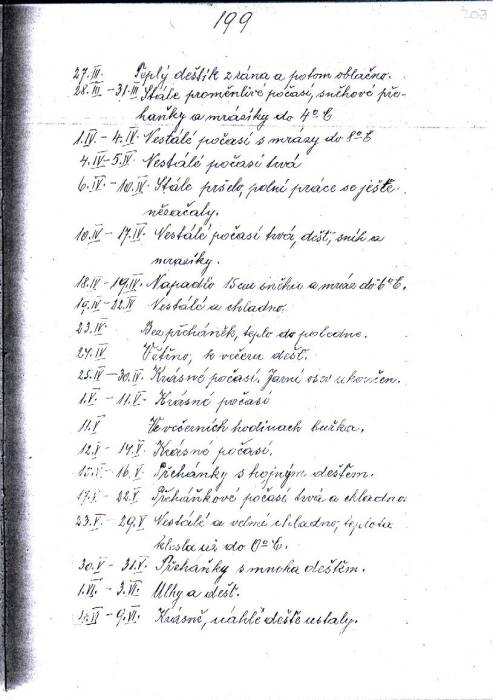 199
203
27.III. Teplý deštík zrána a potom oblačno.
28.III – 31.III Stále proměnlivé počasí, sněhové pře-
háňky a mrazíky do 4° C
1.IV – 4.IV Nestálé počasí s mrazy do 8° C
4.IV – 5.IV. Nestálé počasí trvá
6.IV – 10.IV. Stále pršelo, polní práce se ještě
nezačaly.
10.IV – 17.IV. Nestálé počasí trvá, déšť, sníh a
mrazíky.
18.IV – 19.IV. Napadlo 15 cm sněhu a mráz do 6° C.
19.IV – 22.IV Nestálé a chladno.
23.IV Bez přeháněk, teplo do poledne.
24.IV. Větrno, k večeru déšť.
25.IV – 30.IV. Krásné počasí. Jarní osev ukončen.
1.V. – 11.V. Krásné počasí
11.V Ve večerních hodinách bouřka.
12.V – 14.V. Krásné počasí.
15.V – 16.V. Přehánky s hojným deštěm.
17.V – 22.V Přeháňkové počasí trvá a chladno.
23.V. – 29.V Nestálé a velmi chladno, teplota
klesla až do 0° C.
30.V – 31.V. Přeháňky s mnoha deštěm.
1.VI. – 3.VI. Mlhy a déšť.
4.VI – 9.VI. Krásně, náhlé deště ustaly.